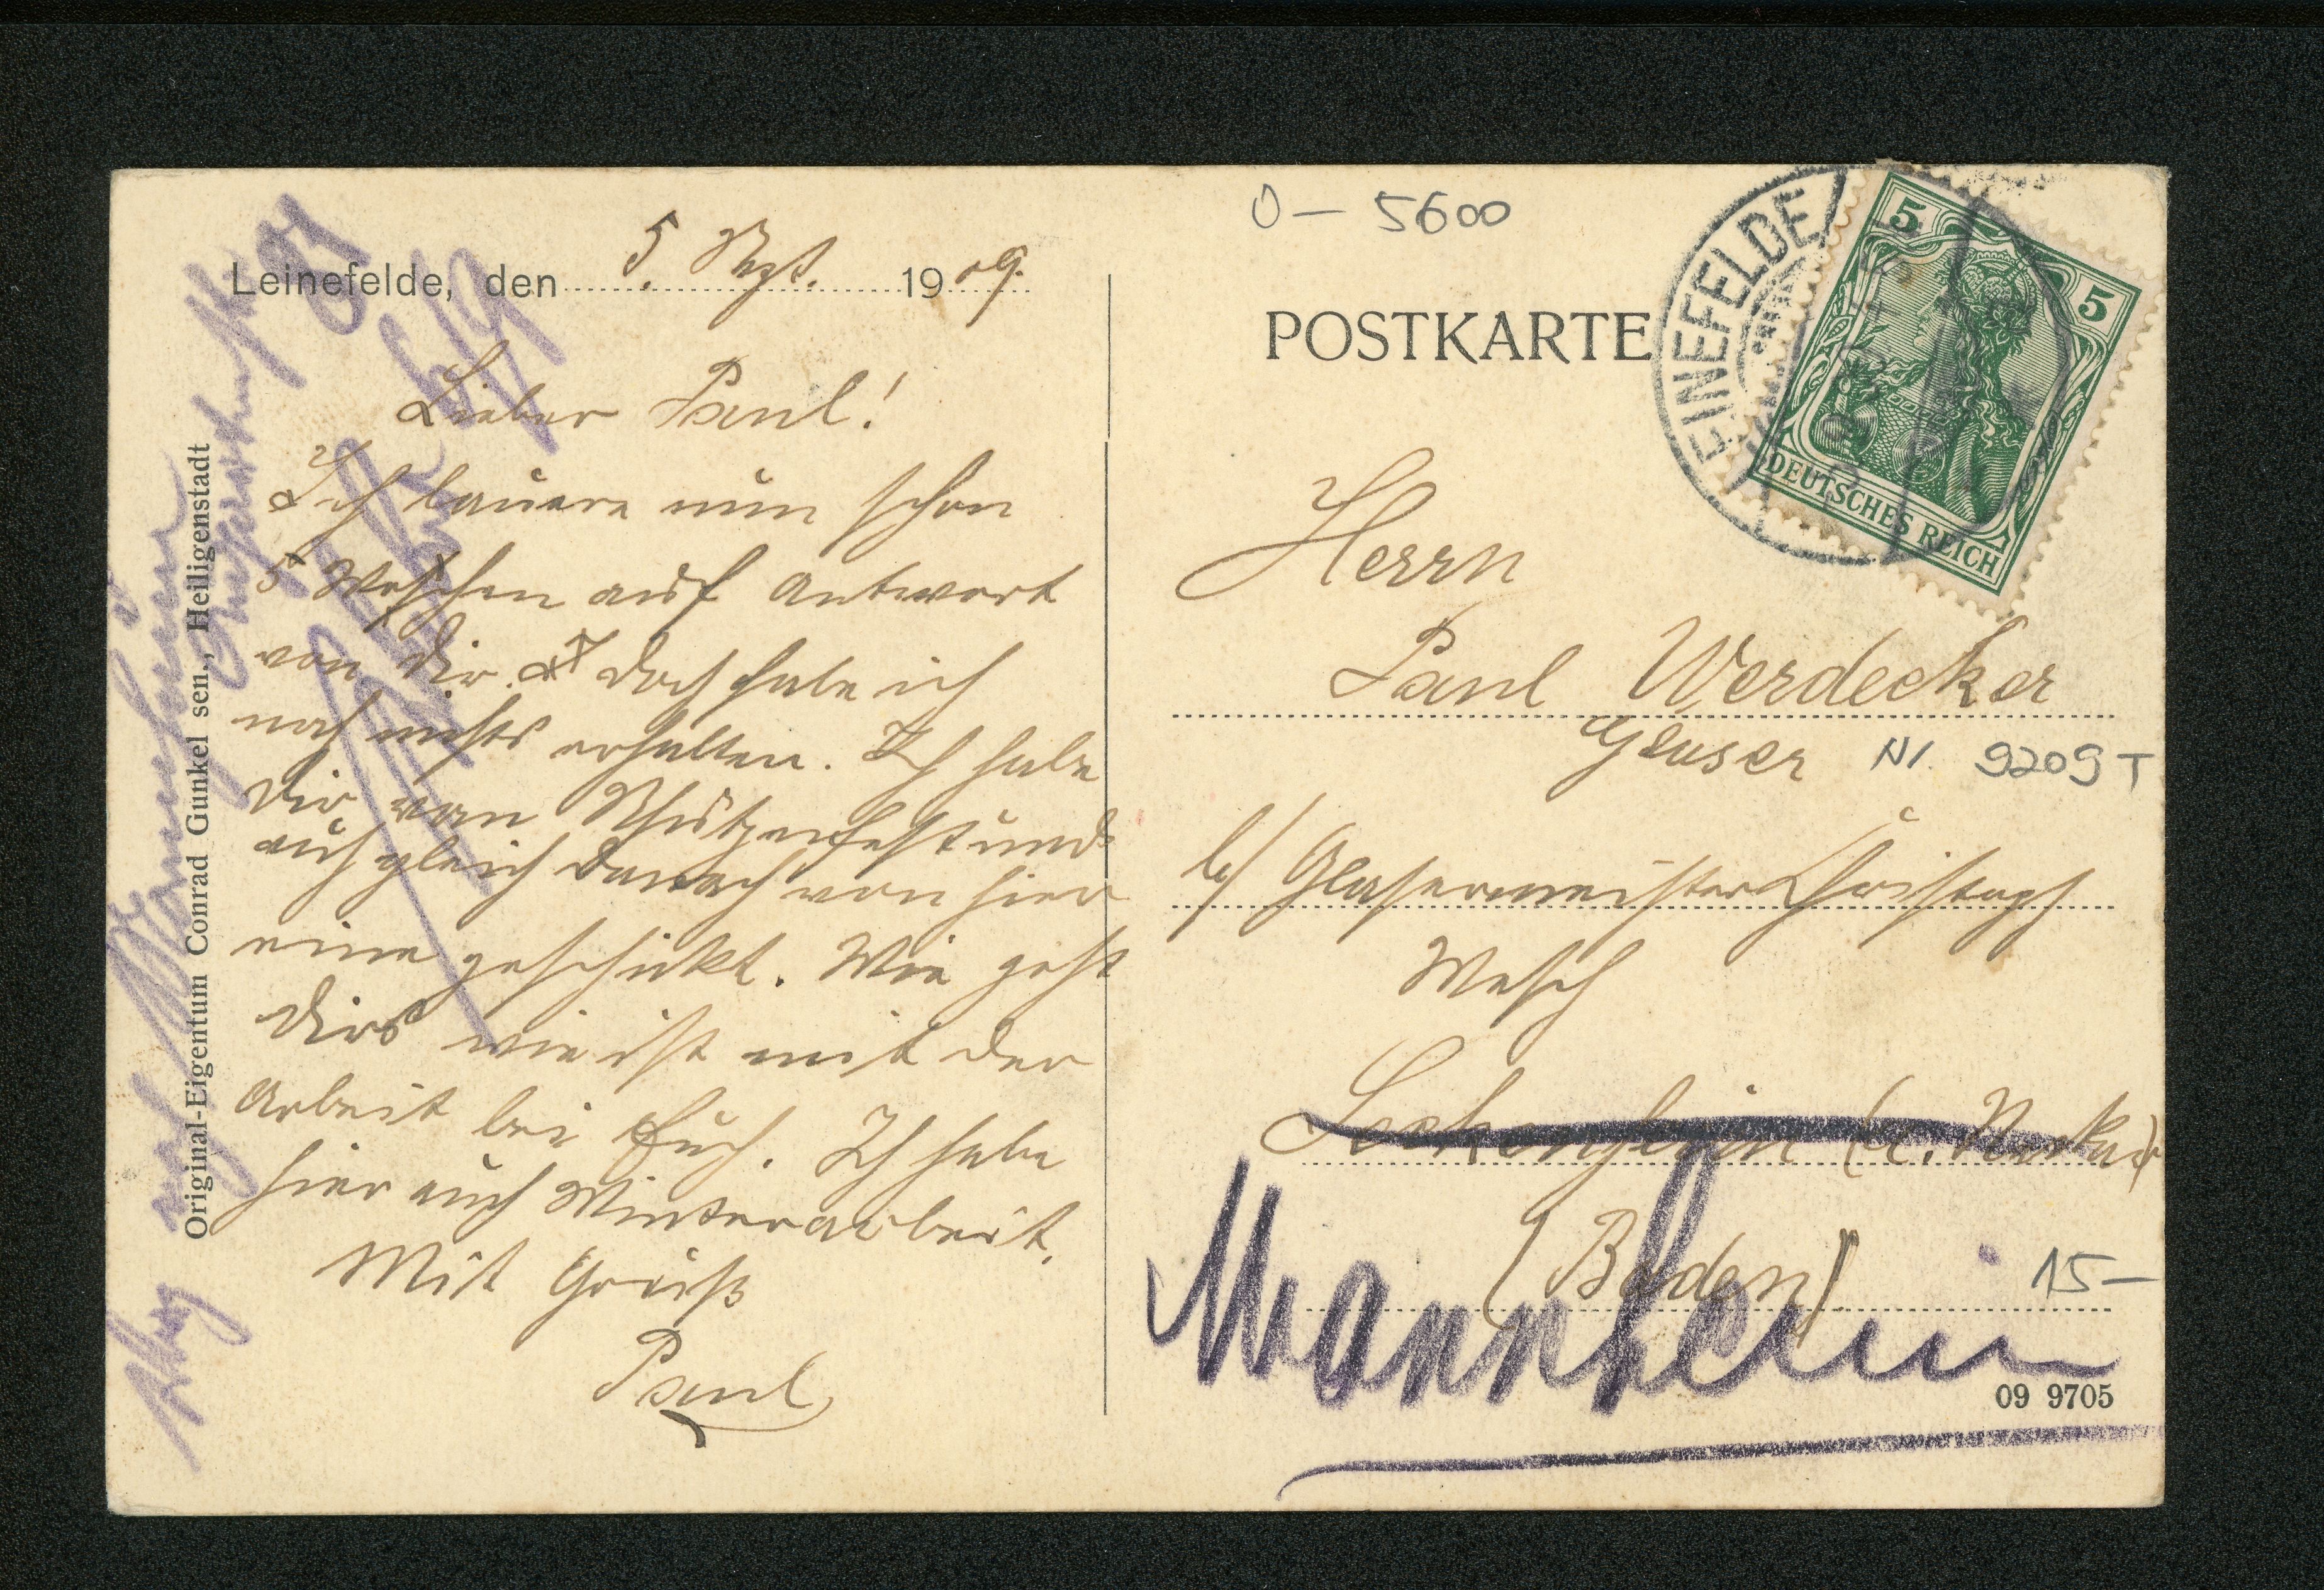 Leinefelde, den 5. Sept. 1909.
Lieber Paul!
Ich lauere nun schon
5 Wochen auf Antwort
von Dir. doch habe ich
noch nichts erhalten. Ich habe
Dir vom Schützenfest und
auch gleich danach von hier
eine geschickt. Wie geht
Dirs wie ist mit der
Arbeit bei Euch. Ich habe
hier auch Winterarbeit.
Mit Gruß
Paul
Original-Eigentum Conrad Gunkel sen., Heiligenstadt
nach Mannheim
0 — 5600
POSTKARTE
LEINEFELDE
5 5
DEUTSCHES REICH
Herrn
Paul Werdecker
Glaser
N. 9209 T
b/ Glasermeister
Wesch
Seckenheim (a. Neckar)
(Baden)
15—
Mannheim
09 9705